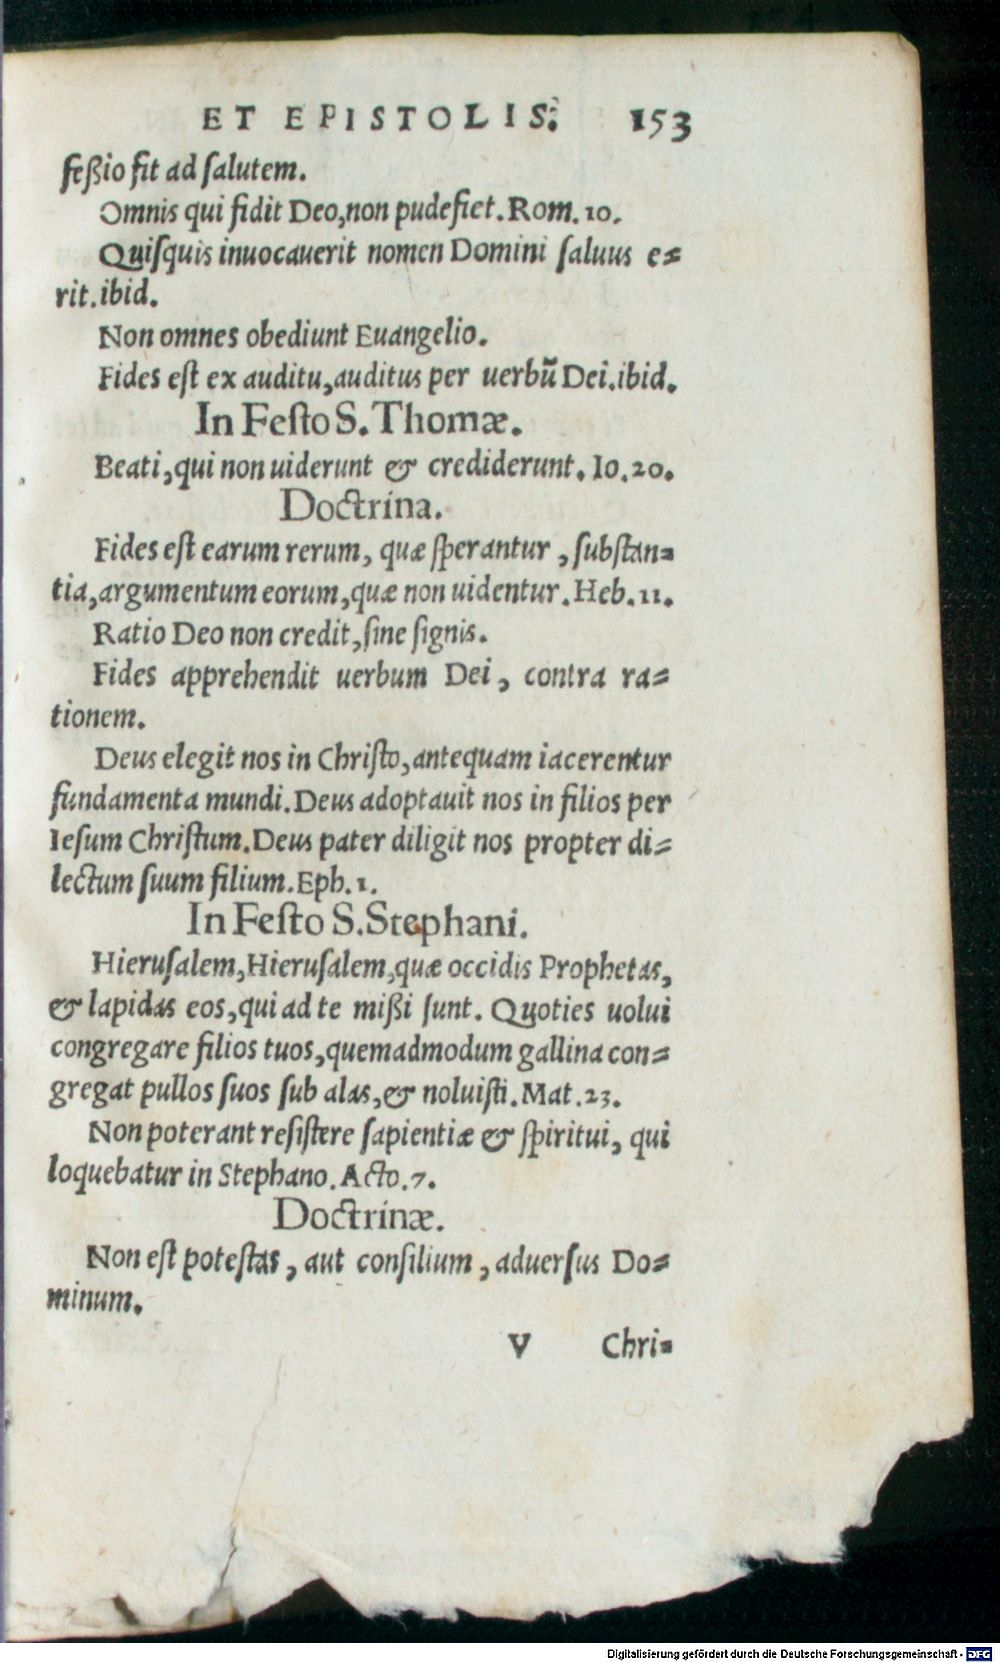 ET EPISTOLIS. 153
feßio fit ad ſalutem.
Omnis qui fidit Deo,non pudefiet.Rom.10.
Quiſquis inuocauerit nomen Domini ſaluus e⸗
rit.ibid.
Non omnes obediunt Euangelio.
Fides eſt ex auditu,auditus per uerbū Dei.ibid.
In Feſto S.Thomæ.
Beati,qui non uiderunt & crediderunt.Io.20.
Doctrina.
Fides eſt earum rerum, quæ ſperantur, ſubſtan⸗
tia,argumentum eorum,quæ non uidentur.Heb.11.
Ratio Deo non credit,ſine ſignis.
Fides apprehendit uerbum Dei, contra ra⸗
tionem.
Deus elegit nos in Chriſto,antequam iacerentur
fundamenta mundi.Deus adoptauit nos in filios per
Ieſum Chriſtum.Deus pater diligit nos propter di⸗
lectum ſuum filium.Eph.1.
In Feſto S.Stephani.
Hieruſalem,Hieruſalem,quæ occidis Prophetas,
& lapidas eos,qui ad te mißi ſunt. Quoties uolui
congregare filios tuos,quemadmodum gallina con⸗
gregat pullos ſuos ſub alas,& noluiſti.Mat.23.
Non poterant reſiſtere ſapientiæ & ſpiritui, qui
loquebatur in Stephano.Acto.7.
Doctrinæ.
Non eſt poteſtas, aut conſilium, aduerſus Do⸗
minum.
V Chri⸗
Digitalisierung gefördert durch die Deutsche Forschungsgemeinschaft - DFG